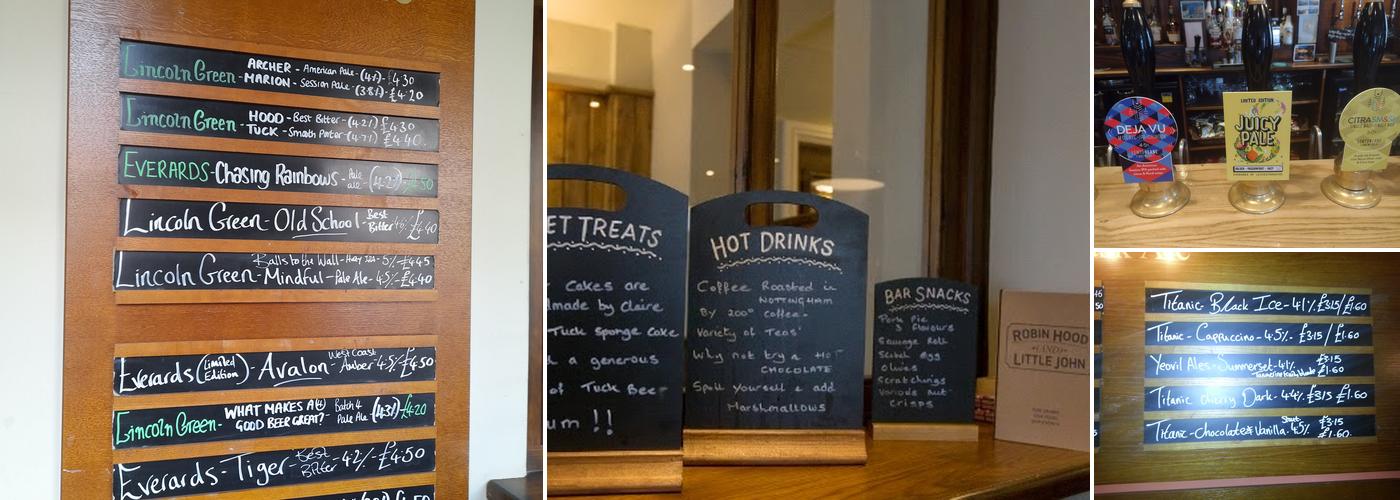 Lincoln Green - ARCHER - American Pale - (4%) - £4.30
MARION - Session Pale - (3.8%) - £4.20
Lincoln Green - HOOD - Best Bitter - (4.2%) £4.30
TUCK - Smooth Porter - (4.7%) £4.40
EVERARDS - Chasing Rainbows - Pale ale - (4.2%) - £4.50
Lincoln Green - Old School - Best Bitter £4.40
Lincoln Green - Balls to the Wall - Hazy IPA - 5% - £4.45
Mindful - Pale Ale - 4.5% - £4.40
Everards (Limited Edition) - Avalon - West Coast Amber - 4.5% - £4.50
Lincoln Green - WHAT MAKES A (4) Batch 4
GOOD BEER GREAT? Pale Ale (4.3%) £4.20
Everards - Tiger - Best Bitter - 4.2% - £4.50
ET TREATS
Cakes are
made by Claire
Tuck sponge cake
a generous
of Tuck Beer
um !!
HOT DRINKS
Coffee Roasted in
NOTTINGHAM
By 200° Coffee.
Variety of Teas'
Why not try a HOT
CHOCOLATE
Spoil yourself & add
Marshmallows
BAR SNACKS
Pork Pie
3 flavours
Sausage Roll
Scotch Egg
Olives
Scratchings
Various Nuts
Crisps
ROBIN HOOD
AND
LITTLE JOHN
DEJA VU
LIMITED EDITION
JUICY
PALE
CITRA
Titanic - Black Ice - 4.1% £3.15/£1.60
Titanic - Cappuccino - 4.5% £3.15/£1.60
Yeovil Ales - Summerset - 4.1% £3.15
£1.60
Titanic Cherry Dark - 4.4% £3.15 £1.60
Titanic - Chocolate & Vanilla Stout 4.5% £3.15
£1.60